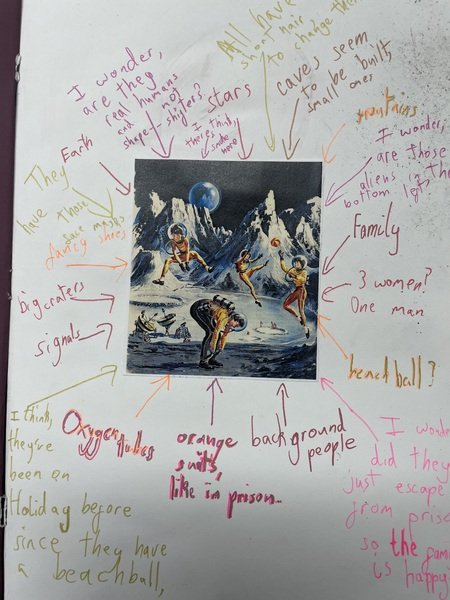 I wonder,
are they
real humans
and not
shape shifters?
I think,
theres
smoke
here
stars
All have
short hair
to change their
caves seem
to be built,
small ones
mountains
I wonder,
are those
aliens in the
bottom left,
Earth
They
have those
face masks
fancy shoes
Family
3 women?
One man
big craters
signals
beach ball?
I think,
they've
been on
Holiday before
since they have
a beachball,
Oxygen
tubes
orange
suits,
like in prison..
background
people
I wonder
did they
just escape
from prison
so the family
is happy